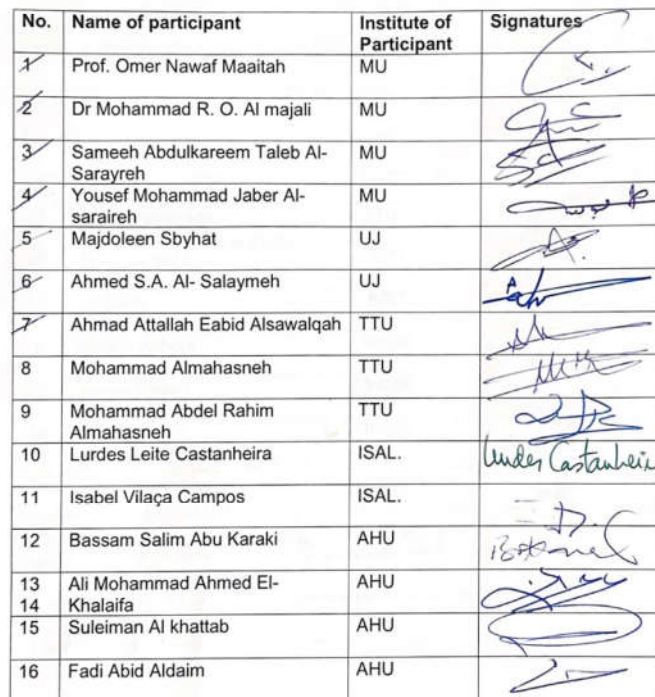 No. Name of participant Institute of Participant Signatures
1 Prof. Omer Nawaf Maaitah MU
2 Dr Mohammad R. O. Al majali MU
3 Sameeh Abdulkareem Taleb Al-
Sarayreh MU
4 Yousef Mohammad Jaber Al-
saraireh MU
5 Majdoleen Sbyhat UJ
6 Ahmed S.A. Al- Salaymeh UJ
7 Ahmad Attallah Eabid Alsawalqah TTU
8 Mohammad Almahasneh TTU
9 Mohammad Abdel Rahim
Almahasneh TTU
10 Lurdes Leite Castanheira ISAL. Lurdes Castanheira
11 Isabel Vilaça Campos ISAL.
12 Bassam Salim Abu Karaki AHU
13 Ali Mohammad Ahmed El- AHU
14 Khalaifa
15 Suleiman Al khattab AHU
16 Fadi Abid Aldaim AHU